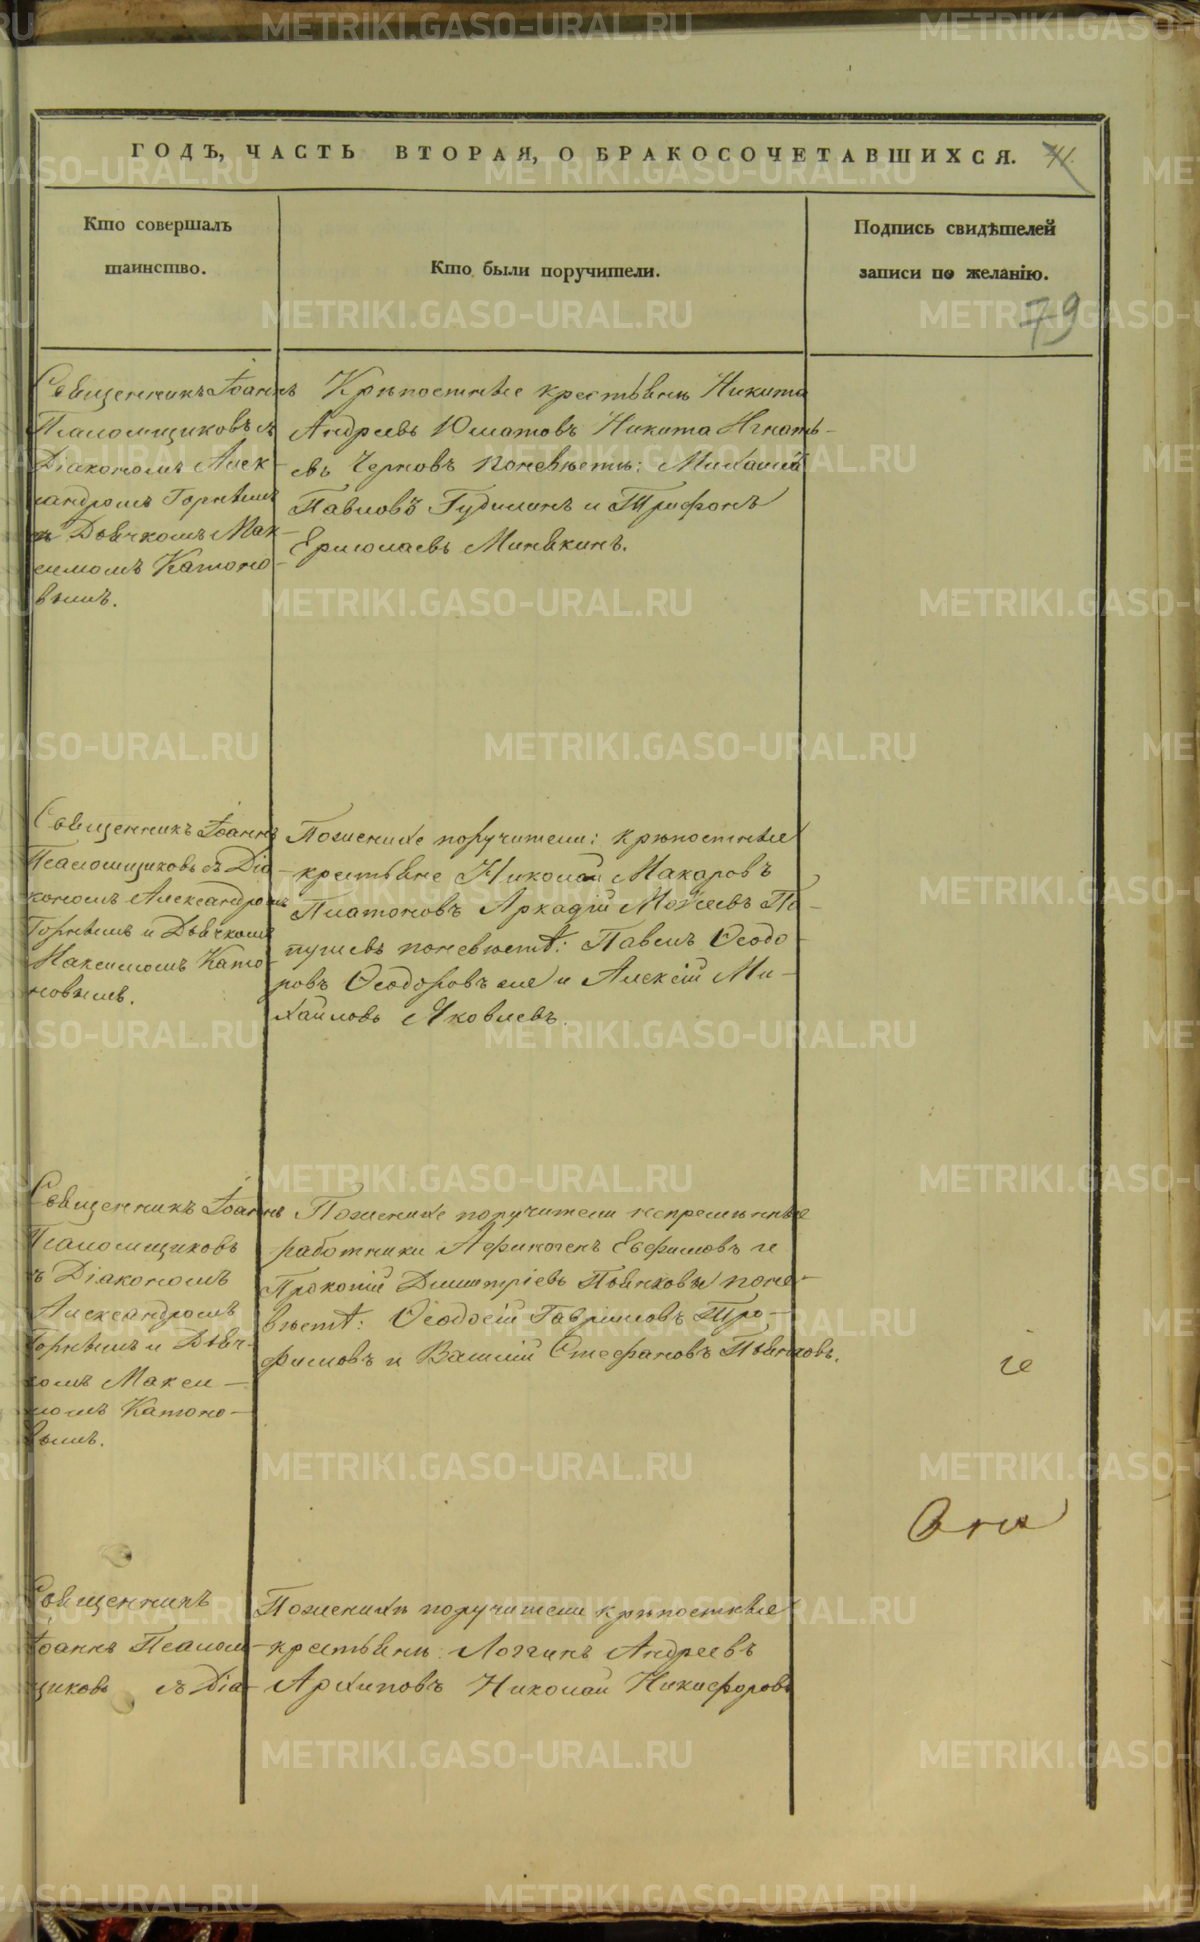 ГОДЪ, ЧАСТЬ ВТОРАЯ, О БРАКОСОЧЕТАВШИХСЯ.
Кто совершалъ
таинство.
Кто были поручители.
Подпись свидѣтелей
записи по желанію.
79
Священникъ Іоаннъ
Псаломщиковъ съ
Діакономъ Алек-
сандромъ Горнымъ
и Дьячкомъ Мак-
симомъ Катоно-
вымъ.
Крѣпостные крестьяни Никита
Андреевъ Юматовъ Никита Игнать-
евъ Черновъ поневѣсты: Михаилъ
Павловъ Гудилинъ и Трифонъ
Ермолаевъ Минькинъ.
Священникъ Іоаннъ
Псаломщиковъ съ Діа-
кономъ Александромъ
Горнымъ и Дьячкомъ
Максимомъ Като-
новымъ.
Поженихе поручители: крѣпостные
крестьяне Николай Макаровъ
Платоновъ Аркадій Моѵсеевъ Пе-
тушевъ поневѣстѣ: Павелъ Ѳеодо-
ровъ Ѳеодоровъ же и Алексій Ми-
хайловъ Яковлевъ.
Священникъ Іоаннъ
Псаломщиковъ
съ Діакономъ
Александромъ
Горнымъ и Дьяч-
комъ Макси-
момъ Катоно-
вымъ.
Поженихе поручители непременные
работники Афиногенъ Евфимовъ и
Прокопій Димитріевъ Пьянковы поне-
вѣстѣ: Ѳеодосій Гавриловъ Тро-
фимовъ и Василій Стефановъ Пьянковъ.
Священникъ
Іоаннъ Псалом-
щиковъ съ Діа-
Поженихѣ поручители крѣпостные
крестьяни: Логгинъ Андреевъ
Архиповъ Николай Никифоровъ
METRIKI.GASO-URAL.RU